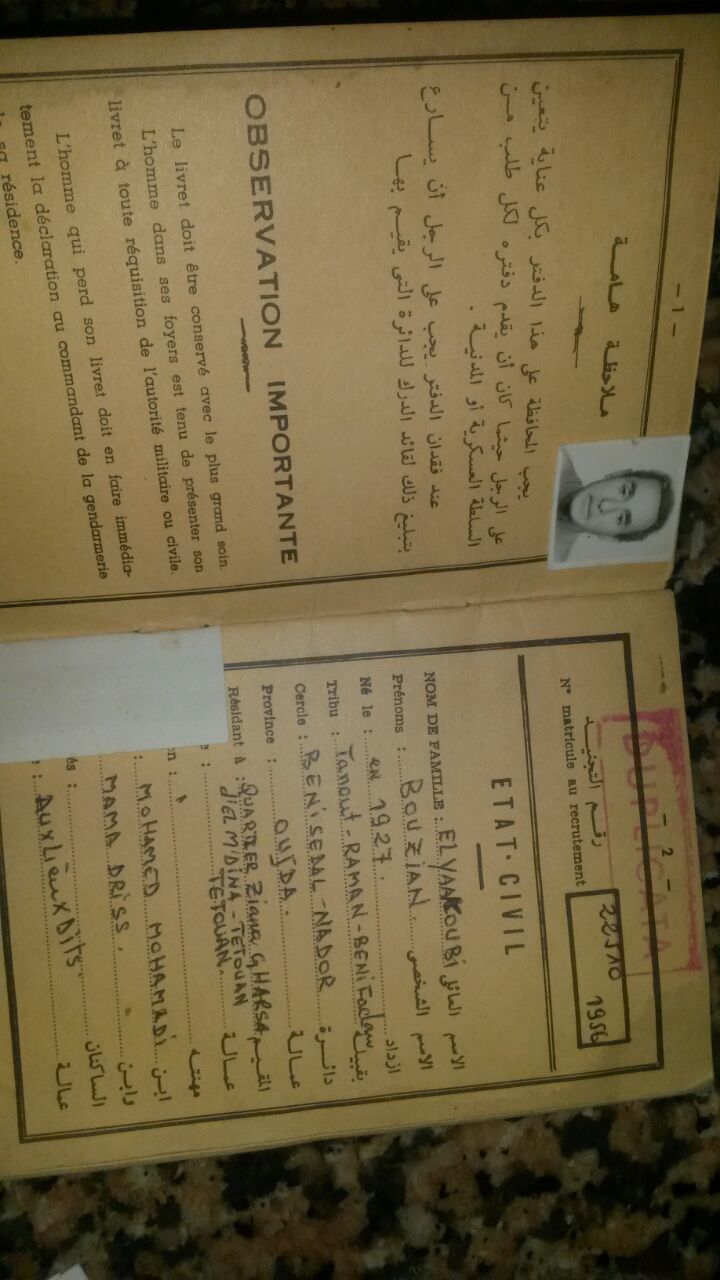 - 1 -
ملاحظة هامة
يجب المحافظة على هذا الدفتر بكل عناية يتعين
على الرجل حيثما كان أن يقدم دفتره لكل طلب من
السلطة العسكرية أو المدنية .
عند فقدان الدفتر يجب على الرجل أن يسارع
بتبليغ ذلك لقائد الدرك للدائرة التي يقيم بها
OBSERVATION IMPORTANTE
Le livret doit être conservé avec le plus grand soin.
L'homme dans ses foyers est tenu de présenter son
livret à toute réquisition de l'autorité militaire ou civile.
L'homme qui perd son livret doit en faire immédia-
tement la déclaration au commandant de la gendarmerie
sa résidence.
- 2 -
DUPLICATA
رقم التجنيد
N° matricule au recrutement
22510 1956
ETAT-CIVIL
NOM DE FAMILLE : EL YAAKOUBI الاسم العائلي
Prénoms : BOUZIAN. الاسم الشخصي
Né le : en 1927. ازداد
Tribu : Tanout-RAMAN-BENI بقبيلة
Cercle : BENISEDAL-NADOR دائرة
Province : OUJDA. عمالة
Résidant à : QUARTIER Ziana GHARSA المقيم
M'DINA-TETOUAN
TETOUAN. عمالة
on : مهنته
: MOHAMED MOHAMADI ابن
MAMA DRISS. وابن
és : الساكنان
e : AUX LIEUX DITS عمالة